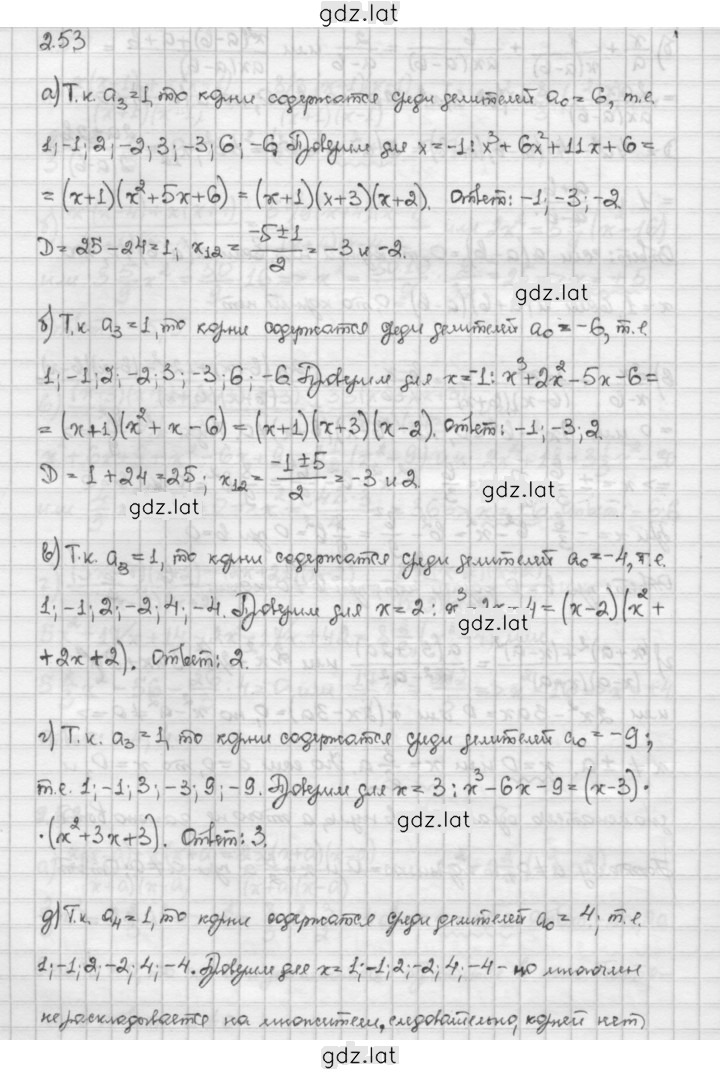 gdz.lat
2.53
а) Т.к. a₃=1, то корни содержатся среди делителей a₀=6, т.е.
1; -1; 2; -2; 3; -3; 6; -6. Проверим для x=-1: x³+6x²+11x+6=
=(x+1)(x²+5x+6)=(x+1)(x+3)(x+2). Ответ: -1; -3; -2.
D=25-24=1; x₁₂=(-5±1)/2=-3 и -2.
gdz.lat
б) Т.к. a₃=1, то корни содержатся среди делителей a₀=-6, т.е.
1; -1; 2; -2; 3; -3; 6; -6. Проверим для x=-1: x³+2x²-5x-6=
=(x+1)(x²+x-6)=(x+1)(x+3)(x-2). Ответ: -1; -3; 2.
D=1+24=25; x₁₂=(-1±5)/2=-3 и 2.
gdz.lat
gdz.lat
в) Т.к. a₃=1, то корни содержатся среди делителей a₀=-4, т.е.
1; -1; 2; -2; 4; -4. Проверим для x=2: x³-2x-4=(x-2)(x²+
gdz.lat
+2x+2). Ответ: 2.
г) Т.к. a₃=1, то корни содержатся среди делителей a₀=-9;
т.е. 1; -1; 3; -3; 9; -9. Проверим для x=3: x³-6x-9=(x-3)·
gdz.lat
·(x²+3x+3). Ответ: 3.
д) Т.к. a₄=1, то корни содержатся среди делителей a₀=4; т.е.
1; -1; 2; -2; 4; -4. Проверим для x=1; -1; 2; -2; 4; -4 - но многочлен
не раскладывается на множители, следовательно, корней нет
gdz.lat